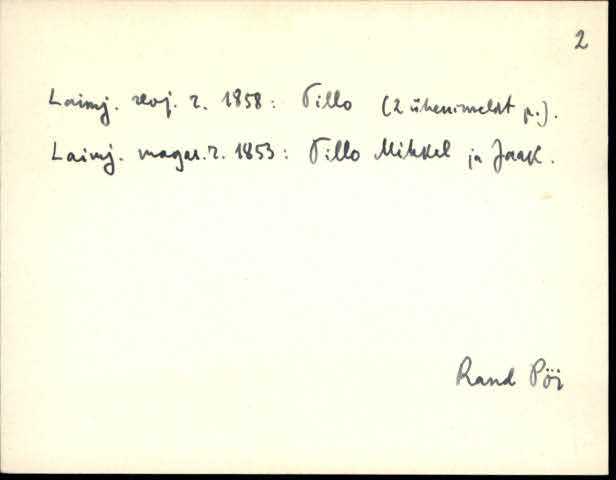 2
Laimj. revj. r. 1858: Tillo (2 ühenimelist p.).
Laimj. magas. r. 1853: Tillo Mihkel ja Jaak.
Rand Pöi